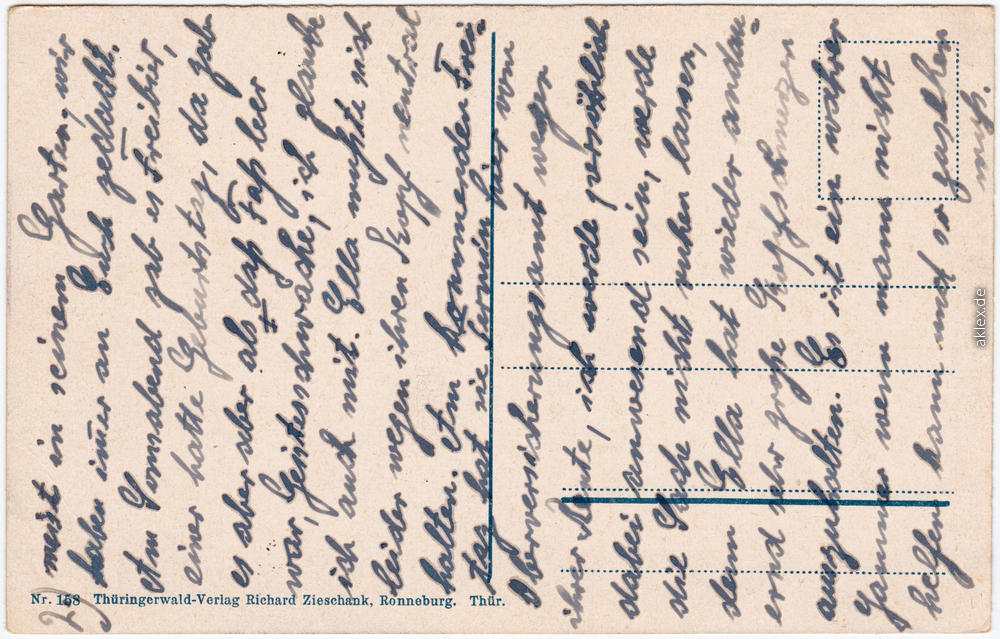 2) meist in seinem Garten, wir
haben im̄er an Euch gedacht.
Am Sonnabend gab es Freibier,
einer hatte Geburtstag, da gab
es aber aber als das Faß leer
war, Geistesschwache, ich glaube
ich auch mit. Ella mußte sich
leider wegen ihren Kopf neutral
halten. Am kommenden Frei-
tag hat sie Termin hier vom
Oberversicherungsamt wegen
ihrer Rente, ich werde persöhlich
dabei anwesend sein, werde
die Sache nicht ruhen lassen,
denn Ella hat wieder andau-
ernd sehr große Kopfschmerzen
auszuhalten. Es ist ein wahrer
Jammer wenn mann nicht
helfen kann und so zusehen
muß.
Nr. 158 Thüringerwald-Verlag Richard Zieschank, Ronneburg. Thür.
aklex.de